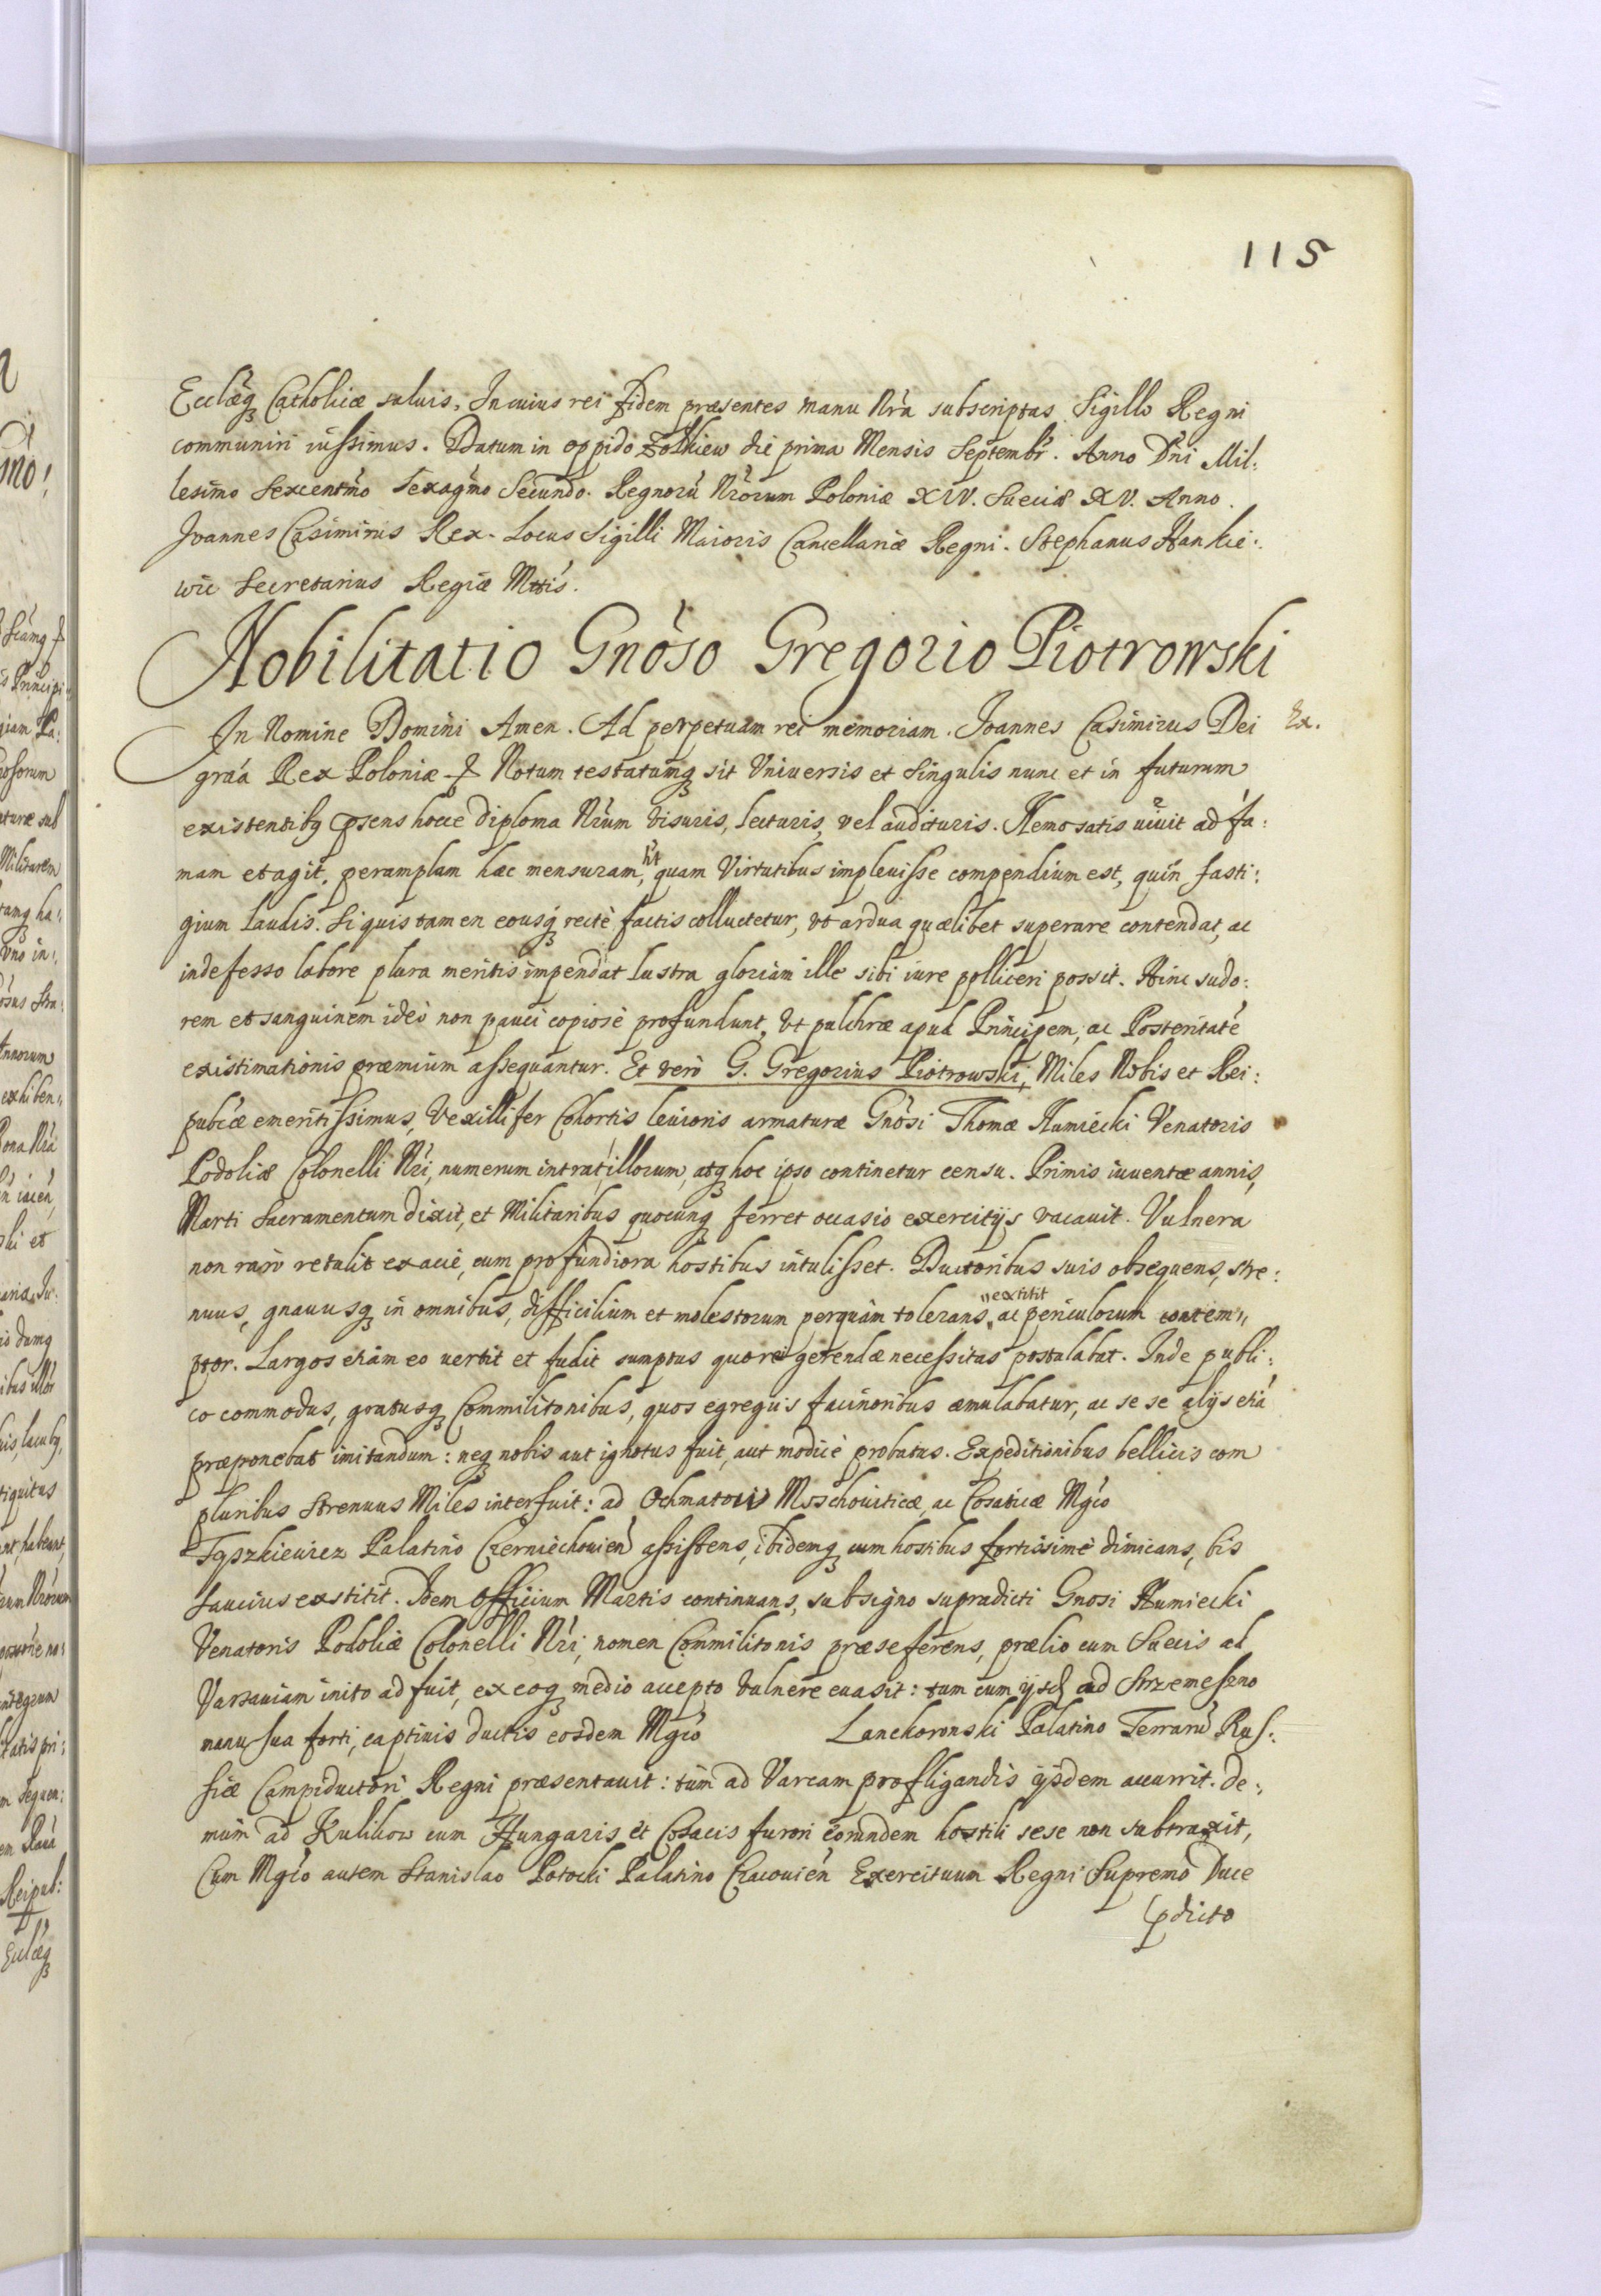 115
Ecclæq Catholicæ saluis, In cuius rei fidem præsentes manu Nrã subscriptas Sigillo Regni
communiri iussimus. Datum in oppido Zolkiew die prima Mensis Septembr. Anno Dni Mil:
lesimo Sexcentmo Sexagmo Secundo. Regnorũ Nrorum Poloniæ XIV. Sueciæ XV. Anno.
Joannes Casimirus Rex. Locus Sigilli Maioris Cancellariæ Regni. Stephanus Hankie:
wic Secretarius Regiæ Mttis.
Nobilitatio Gnoso Gregorio Piotrowski
In Nomine Domini Amen. Ad perpetuam rei memoriam. Joannes Casimirus Dei
Ex.
graa Rex Poloniæ Notum testatumq sit Vniuersis et singulis nunc et in futurum
existentibq psens hocce diploma Nrum visuris, lecturis, vel audituris. Nemo satis uiuit ad fa:
mam et agit, peramplam hæc mensuram, quam Virtutibus impleuisse compendium est, quin fasti:
gium laudis. Si quis tamen eousq rectè factis colluctetur, vt ardua quælibet superare contendat, ac
indefesso labore plura meritis impendat lustra gloriam ille sibi iure polliceri possit. Hinc sudo:
rem et sanguinem ideò non pauci copiosè profundunt, vt pulchræ apud Principem, ac Posteritatẽ
existimationis præmium assequantur. Et verò G. Gregorius Piotrowski, Miles Nobis et Rei:
pubcæ emeritissimus, Vexillifer Cohortis leuioris armaturæ Gnosi Thomæ Humiecki Venatoris
Podoliæ Colonelli Nri, numerum intrat, illorum, atq hoc ipso continetur censu. Primis iuuentæ annis,
Marti Sacramentum dixit, et Militaribus quocunq ferret occasio exercitijs vacauit. Vulnera
non rarò retulit ex acie, cum profundiora hostibus intulisset. Ductoribus suis obsequens, stre:
nuus, gnauusq in omnibus, difficilium et molestorum perquàm tolerans, ac periculorum contem,,
,,extitit
ptor. Largos etiam eo uertit et fudit sumptus quo rei gerendæ necessitas postulabat. Inde publi:
co commodus, gratusq Commilitonibus, quos egregijs facinoribus æmulabatur, ac se se alijs etiã
præponebat imitandum: neq nobis aut ignotus fuit, aut modicè probatus. Expeditionibus bellicis com
pluribus strenuus Miles interfuit: ad Ochmatow Moschouiticæ, ac Cosaticæ Mgco
Tyszkiewicz Palatino Czerniechouien assistens, ibidemq cum hostibus fortissimè dimicans, bis
saucius exstitit. Idem officium Martis continuans, sub signo supradicti Gnosi Humiecki
Venatoris Podoliæ Colonelli Nri, nomen Commilitonis præseferens, prælio cum Suecis ad
Varsauiam inito adfuit, ex eoq medio accepto vulnere euasit: tum cum ijsd ad Strzemeszno
manu sua forti, captiuis ductis eosdem Mgco Lanckoronski Palatino Terrarũ Rus:
siæ Campiductori Regni præsentauit: tum ad Varcam profligandis ijsdem accurrit. De:
mùm ad Kulikow cum Hungaris et Cosacis furori eorundem hostili sese non subtraxit,
Cum Mgco autem Stanislao Potocki Palatino Cracouien Exercituum Regni Supremo Duce
pdicto